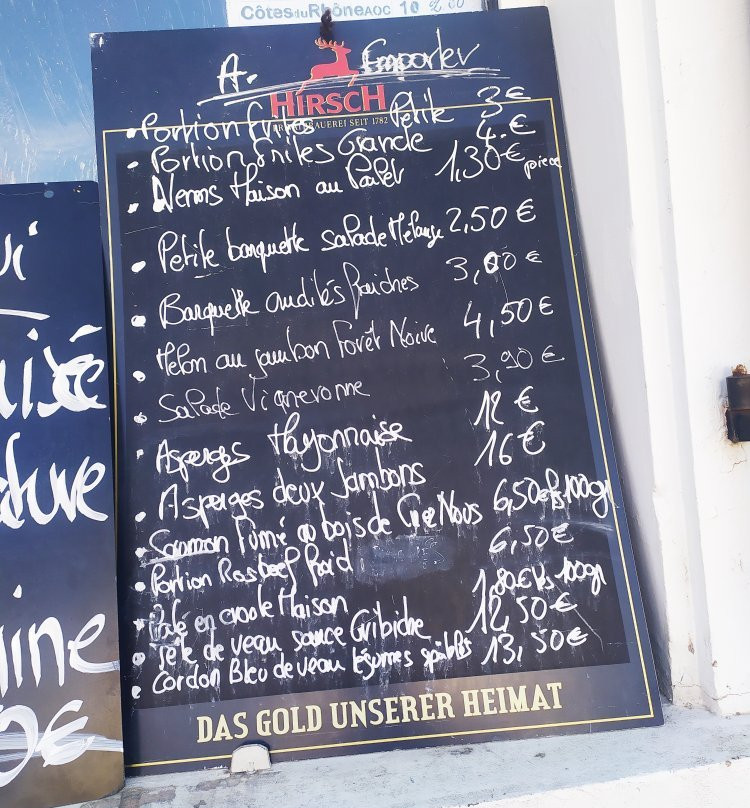 Côtes du Rhône AOC 10
A. Emporter
HIRSCH
BRAUEREI SEIT 1782
• Portion frites Petite 3€
• Portion frites Grande 4.€
• Nems Maison au Poulet 1,30€ piece
• Petite barquette salade Mélange 2,50€
• Barquette crudités fraiches 3,00€
• Melon au jambon Forêt Noire 4,50€
• Salade Vigneronne 3,90€
• Asperges Mayonnaise 12€
• Asperges deux Jambons 16€
• Saumon Fumé au bois de Chez Nous 6,50€ les 100gr
• Portion Rosbeef froid 6,50€
• Paté en croute Maison 1,80€ les 100gr
• Tête de veau sauce Gribiche 12,50€
• Cordon Bleu de veau légumes spätzles 13,50€
DAS GOLD UNSERER HEIMAT